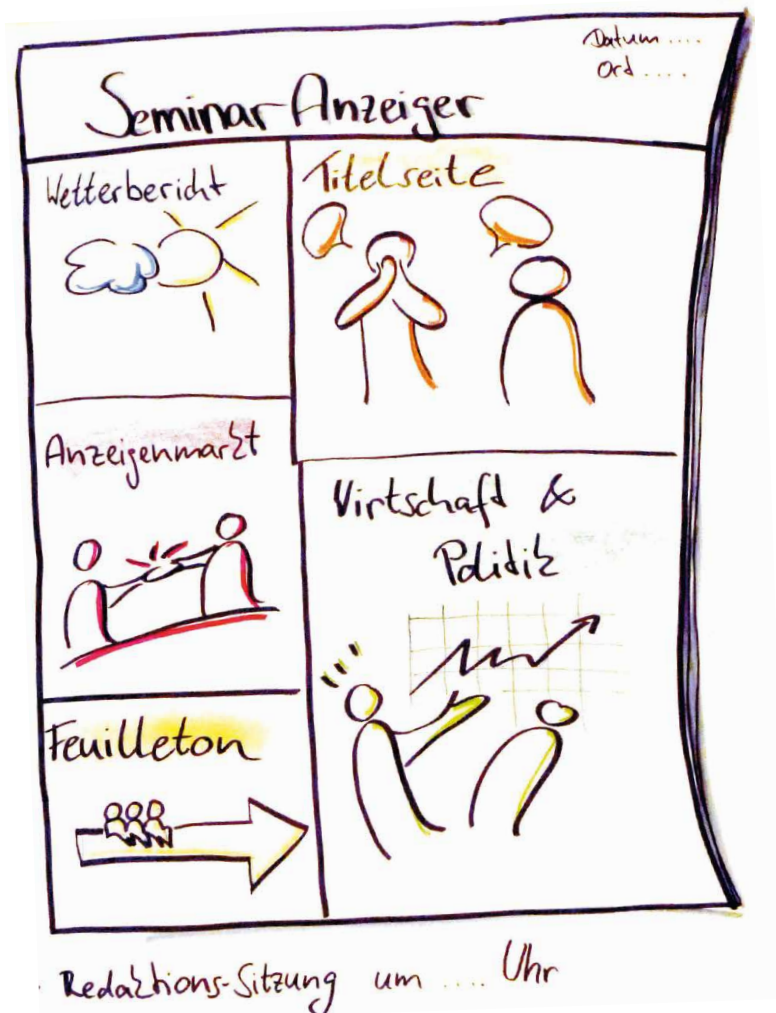 Datum ....
Ord ....
Seminar Anzeiger
Wetterbericht
Titelseite
Anzeigenmarkt
Wirtschaft &
Politik
Feuilleton
Redaktions-Sitzung um .... Uhr